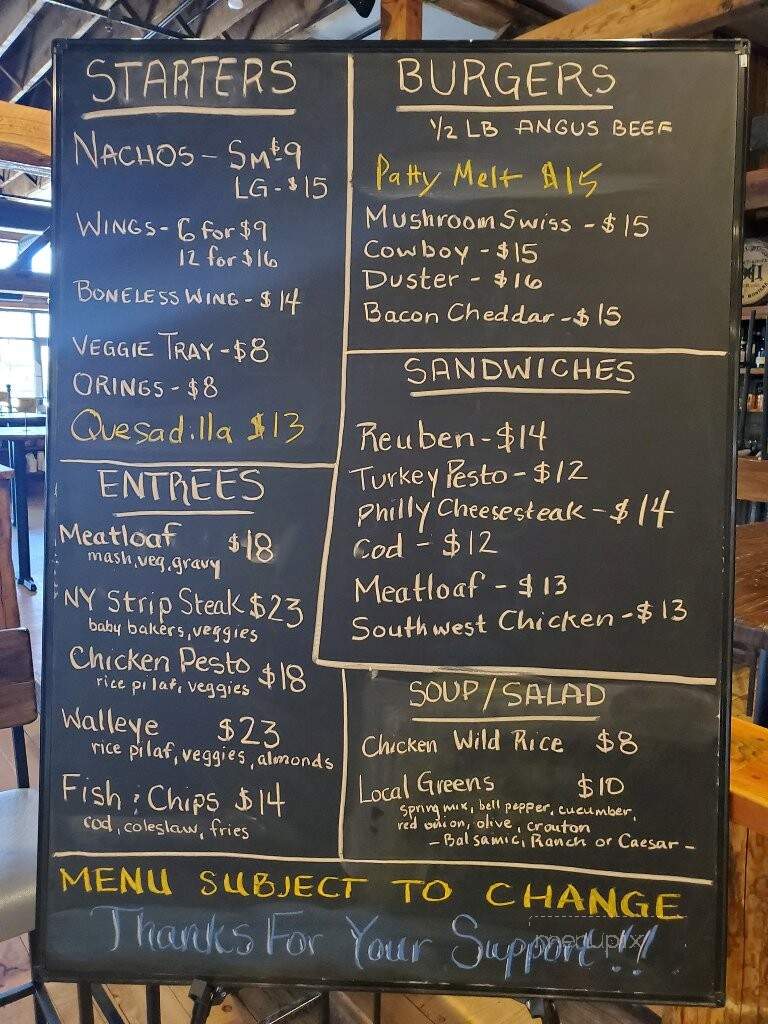 STARTERS
NACHOS - SM-$9
LG-$15
WINGS- 6 for $9
12 for $16
BONELESS WING - $14
VEGGIE TRAY -$8
ORINGS - $8
Quesadilla $13
ENTREES
Meatloaf $18
mash, veg, gravy
NY Strip Steak $23
baby bakers, veggies
Chicken Pesto $18
rice pilaf, veggies
Walleye $23
rice pilaf, veggies, almonds
Fish & Chips $14
cod, coleslaw, fries
BURGERS
1/2 LB ANGUS BEEF
Patty Melt $15
Mushroom Swiss - $15
Cowboy - $15
Duster - $16
Bacon Cheddar - $15
SANDWICHES
Reuben - $14
Turkey Pesto - $12
Philly Cheesesteak - $14
Cod - $12
Meatloaf - $13
Southwest Chicken - $13
SOUP/SALAD
Chicken Wild Rice $8
Local Greens $10
spring mix, bell pepper, cucumber,
red onion, olive, crouton
- Balsamic, Ranch or Caesar -
MENU SUBJECT TO CHANGE
Thanks For Your Support!!
menupix